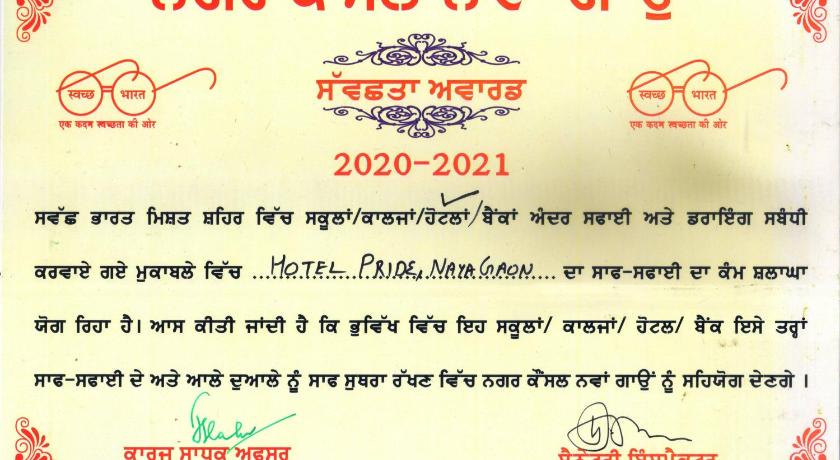 ਨਗਰ ਕੌਂਸਲ ਨਵਾਂ ਗਾਉਂ
स्वच्छ भारत
एक कदम स्वच्छता की ओर
ਸਵੱਛਤਾ ਅਵਾਰਡ
स्वच्छ भारत
एक कदम स्वच्छता की ओर
2020-2021
ਸਵੱਛ ਭਾਰਤ ਮਿਸ਼ਤ ਸ਼ਹਿਰ ਵਿੱਚ ਸਕੂਲਾਂ/ਕਾਲਜਾਂ/ਹੋਟਲਾਂ/ਬੈਂਕਾਂ ਅੰਦਰ ਸਫਾਈ ਅਤੇ ਡਰਾਇੰਗ ਸਬੰਧੀ
ਕਰਵਾਏ ਗਏ ਮੁਕਾਬਲੇ ਵਿੱਚ ...HOTEL PRIDE, NAYA GAON... ਦਾ ਸਾਫ-ਸਫਾਈ ਦਾ ਕੰਮ ਸ਼ਲਾਘਾ
ਯੋਗ ਰਿਹਾ ਹੈ। ਆਸ ਕੀਤੀ ਜਾਂਦੀ ਹੈ ਕਿ ਭੁਵਿੱਖ ਵਿੱਚ ਇਹ ਸਕੂਲਾਂ/ ਕਾਲਜਾਂ/ ਹੋਟਲ/ ਬੈਂਕ ਇਸੇ ਤਰ੍ਹਾਂ
ਸਾਫ-ਸਫਾਈ ਦੇ ਅਤੇ ਆਲੇ ਦੁਆਲੇ ਨੂੰ ਸਾਫ ਸੁਥਰਾ ਰੱਖਣ ਵਿੱਚ ਨਗਰ ਕੌਂਸਲ ਨਵਾਂ ਗਾਉਂ ਨੂੰ ਸਹਿਯੋਗ ਦੇਣਗੇ ।
ਕਾਰਜ ਸਾਧਕ ਅਫਸਰ
ਸੈਨੇਟਰੀ ਇੰਸਪੈਕਟਰ